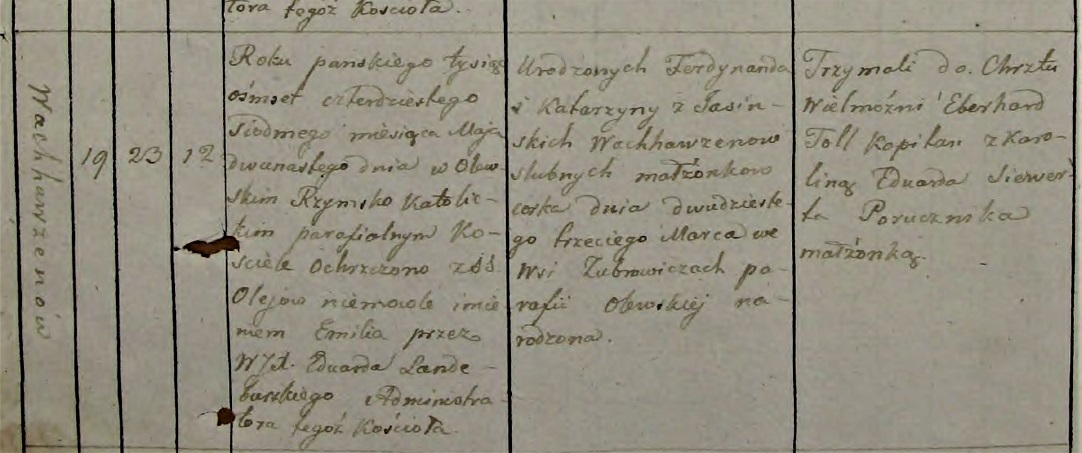 tora tegóż Kościoła.
Wachhawzenów
19
23
12
Roku pańskiego tysiąc
ośmset czterdziestego
Siodmego miesiąca Maja
dwunastego dnia w Olew-
skim Rzymsko Katolic-
kim parafialnym Ko-
ściele Ochrzczono z SS
Olejow niemowle imie
niem Emilia przez
WJX. Eduarda Lande-
burskiego Administra-
tora tegóż Kościoła.
Urodzonych Ferdynanda
i Katarzyny z Jasin-
skich Wachhawzenow
slubnych małżonkow
corka dnia dwudzieste-
go trzeciego Marca we
Wsi Żubrowiczach pa-
rafii Olewskiej na-
rodzona.
Trzymali do Chrztu
Wielmożni Eberhard
Toll Kapitan z Karo-
liną Eduarda Siewer-
ta Porucznika
małżonką.